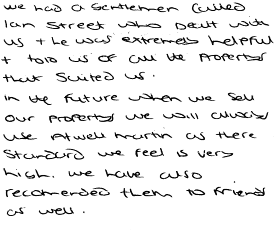 we had a Gentlemen called
Ian Street who Dealt with
us + he was extremely helpful
+ told us of all the Property
that Suited us.
in the future when we sell
our property we will always
use Atwell Martin as there
Standard we feel is very
high. we have also
recomended them to friends
as well.